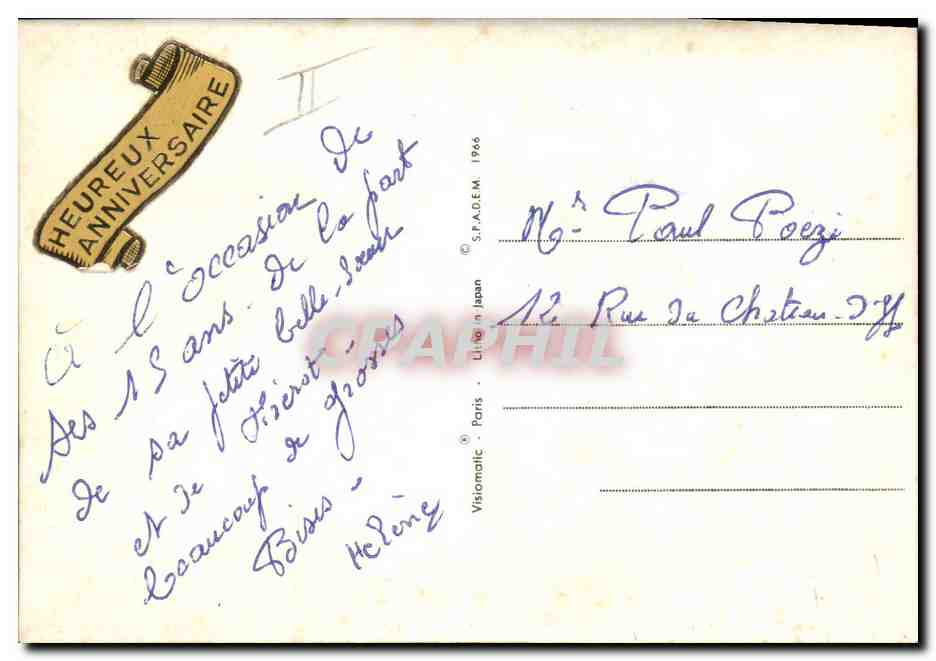 HEUREUX
ANNIVERSAIRE
II
à l'occasion de
ses 15 ans. de la part
de sa petite belle-soeur
et de Pierrot -
beaucoup de grosses
Bises -
Hélène
Visiomatic ® - Paris - Litho in Japan © S.P.A.D.E.M. 1966
CPAPHIL
Mr Paul Poëzi
12 Rue du Chateau-d'If